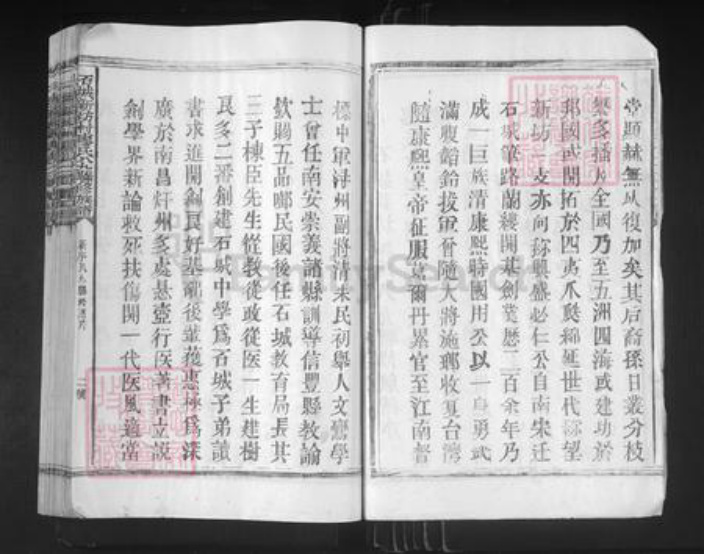 堂顯赫無以復加矣其后裔孫日叢分枝
繁多播及全國乃至五洲四海或建功於
邦國或開拓於四夷瓜瓞綿延世代
新坊一支亦向稱興盛必仁公自南宋迁
石城筆路蘭縷開基創業歷二百余年乃
成一巨族清康熙時國用公以一身勇武
滿腹韜鈐拔軍曾隨大將施瑯收复台灣
隨康熙皇帝征服葛爾丹累官至江南督
標中軍潯州副將清末民初舉人文鸞學
士曾任南安崇義諸縣訓導信豐縣教諭
欽賜五品啣民國後任石城教育局長其
三子棟臣先生從教從政從医一生建樹
良多二番創建石城中學爲石城子弟讀
書求進開創良好基礎後
廣於南昌 州多處悬壺行医著書立說
創學界新論救死扶傷開一代医風適當
FamilySearch